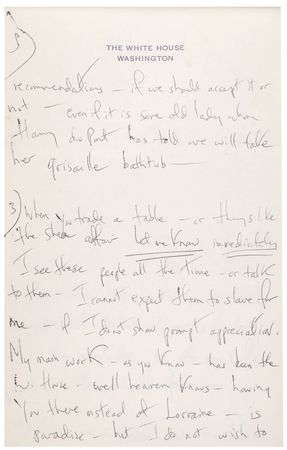 THE WHITE HOUSE
WASHINGTON
recommendations — if we should accept it or
not — even if it is some old lady whom
Harry du Pont has told we will take
her grisaille bathtub —
3) When you trade a table — or things like
the affair let me know immediately
I see these people all the time — or talk
to them — I cannot expect them to slave for
me — if I do not show prompt appreciation.
My main work — as you know — has been the
W. House — well heaven knows — having
you there instead of Lorraine — is
paradise — but I do not wish to